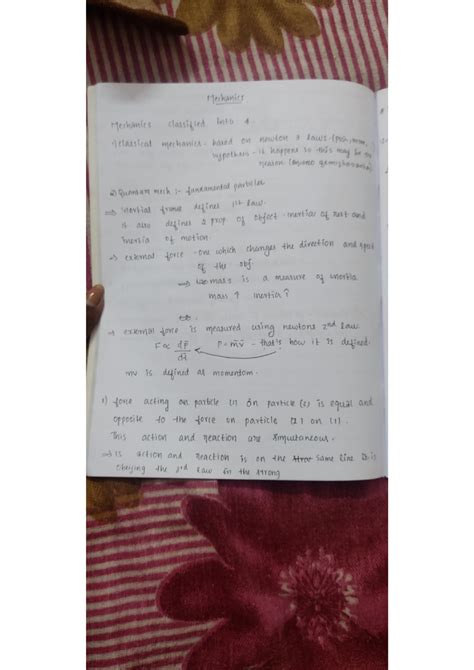 Mechanics
Mechanics classified into 4.
1) classical mechanics - based on newton 3 laws. (push, 
hypothesis - it happens so this may be the
reason
2) Quantum mech :- fundamental particles
⇒ inertial frame defines 1st law.
it also defines 2 prop of object - inertia of rest and
inertia of motion.
⇒ external force - one which changes the direction and speed
of the obj.
⇒ mass is a measure of inertia
mass ↑ inertia ↑
⇒ external force is measured using newtons 2nd law
F ∝ dp̄/dt P = m̄v̄ - that's how it is defined.
mv is defined as momentom.
3) force acting on particle (1) on particle (2) is equal and
opposite to the force on particle (2) on (1).
This action and reaction are simultaneous.
⇒ Is action and reaction is on the same line It is
obeying the 3rd law in the strong